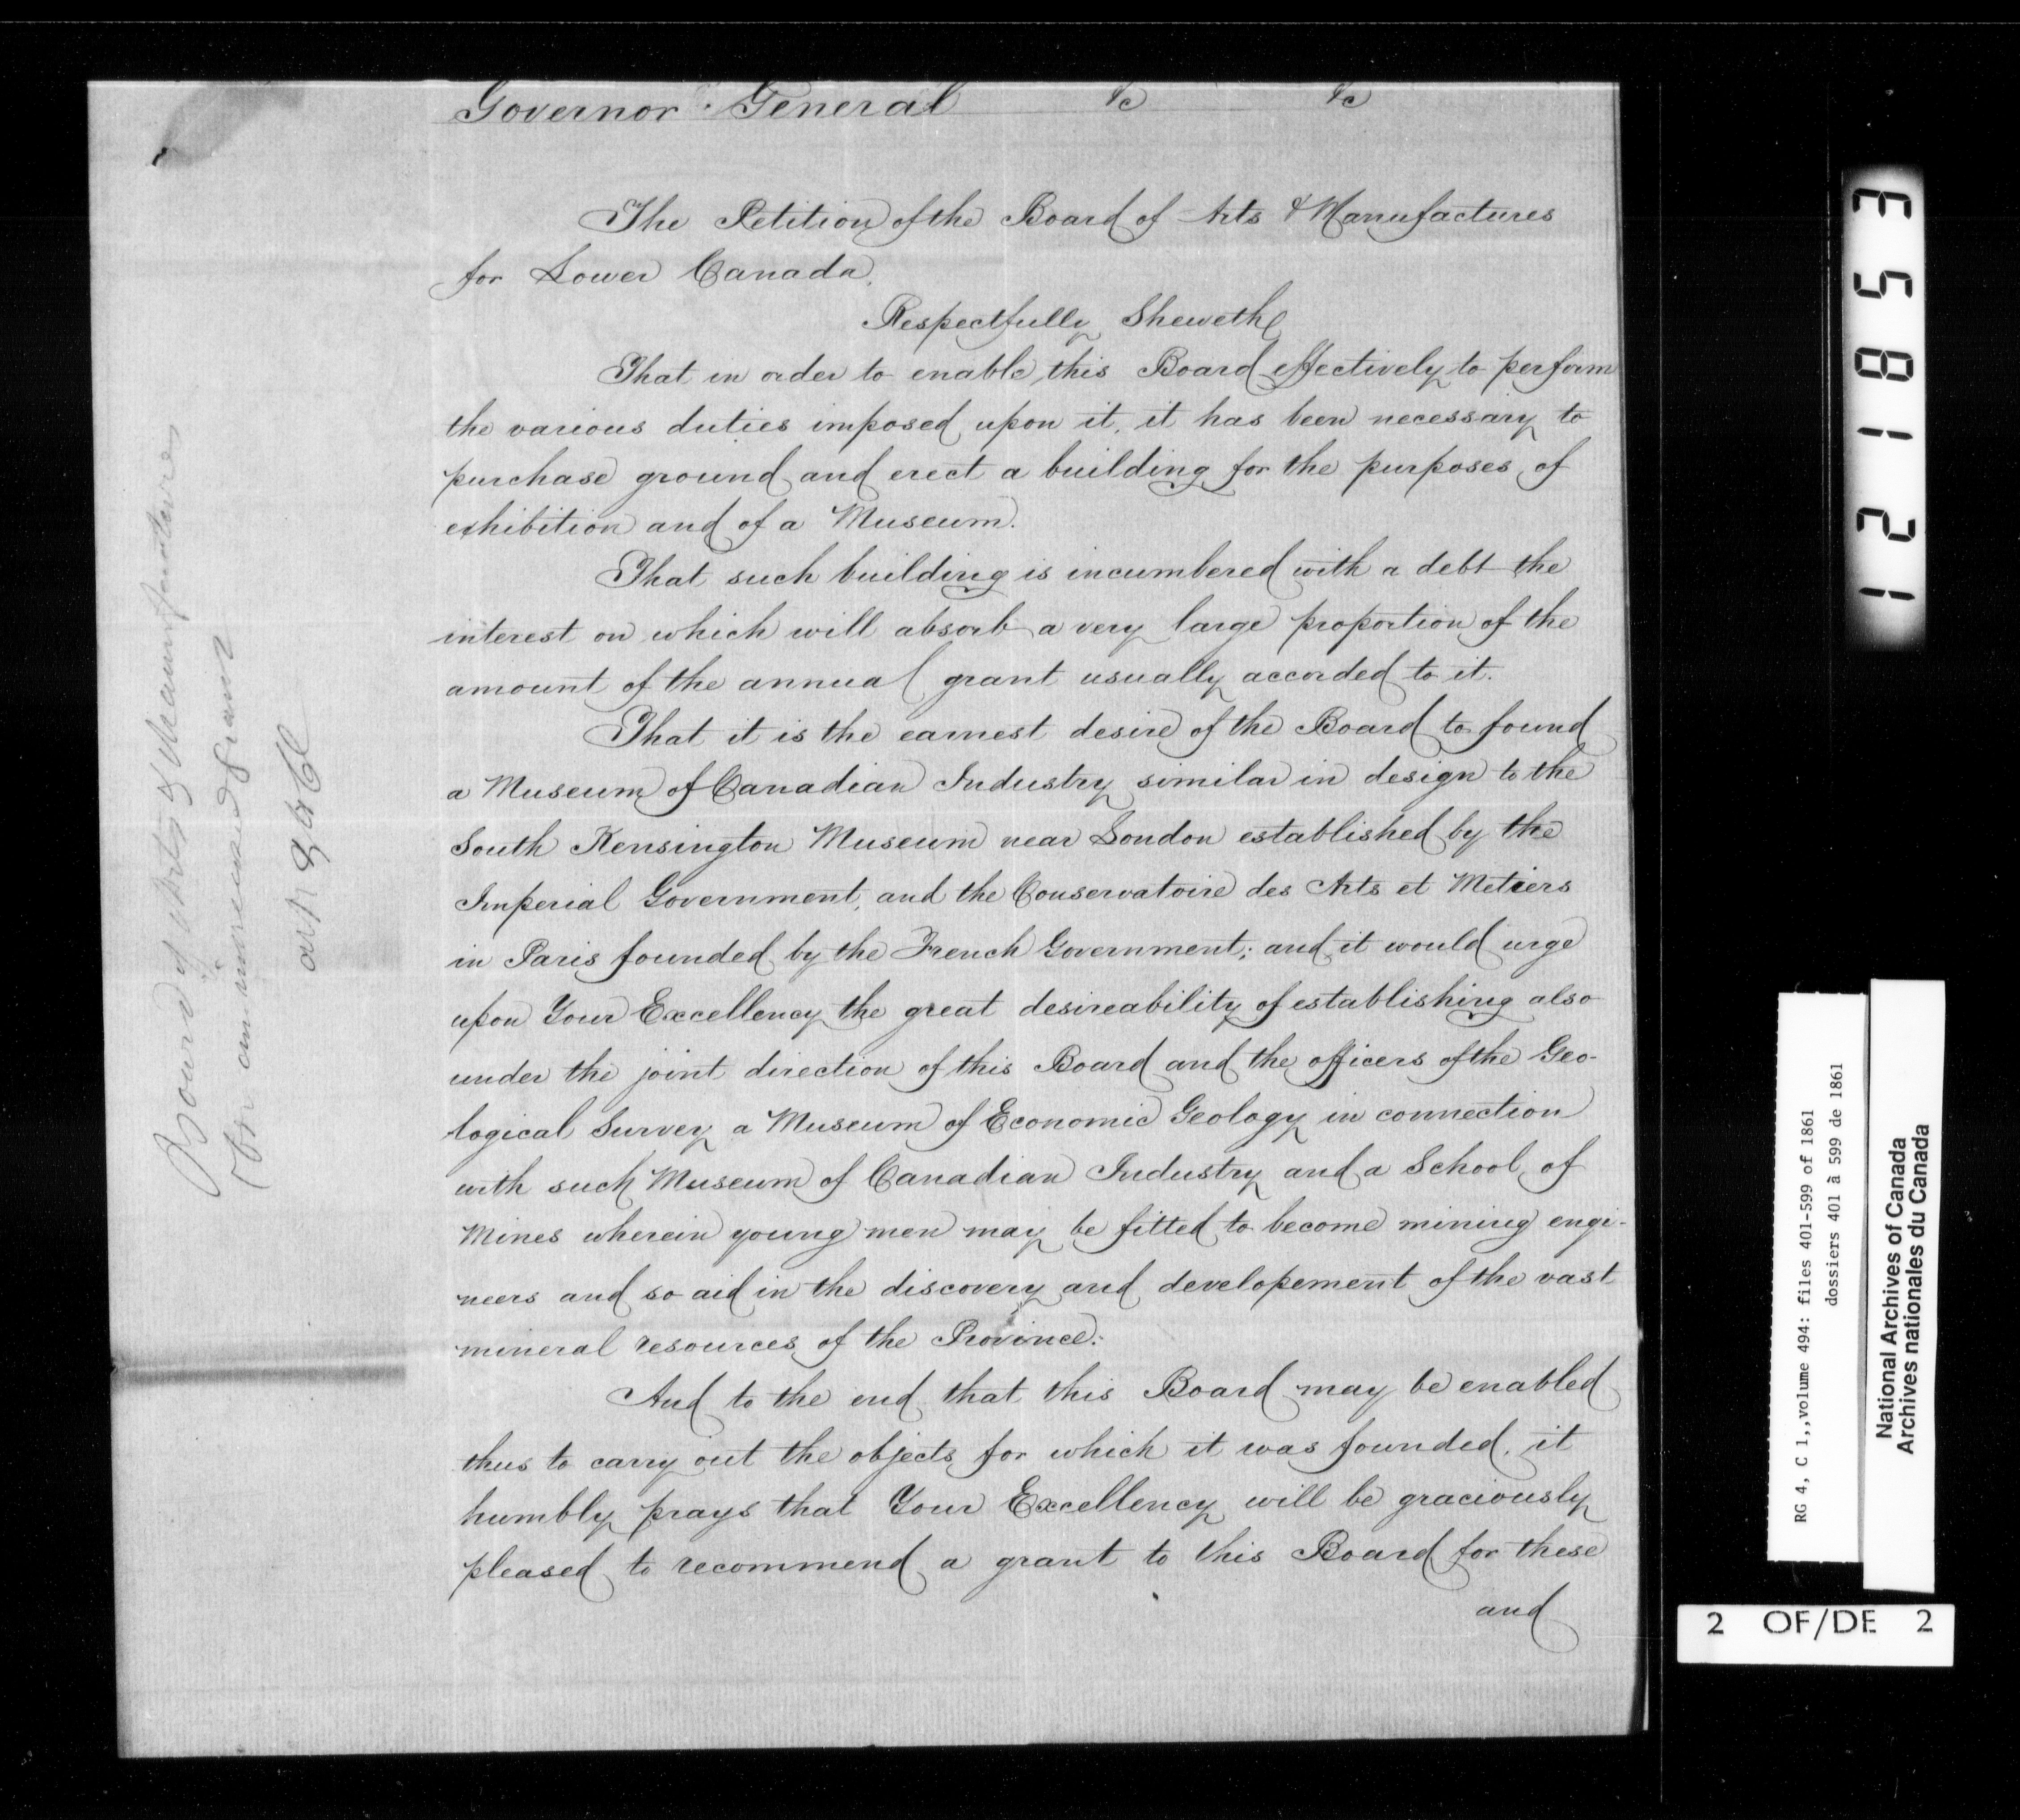 Governor General &c &c
The Petition of the Board of Arts & Manufactures
for Lower Canada.
Respectfully Sheweth
That in order to enable this Board effectively to perform
the various duties imposed upon it, it has been necessary to
purchase ground and erect a building for the purposes of
exhibition and of a Museum.
That such building is incumbered with a debt the
interest on which will absorb a very large proportion of the
amount of the annual grant usually accorded to it.
That it is the earnest desire of the Board to found
a Museum of Canadian Industry similar in design to the
South Kensington Museum near London established by the
Imperial Government, and the Conservatoire des Arts et Metiers
in Paris founded by the French Government; and it would urge
upon Your Excellency the great desireability of establishing also
under the joint direction of this Board and the officers of the Geo-
logical Survey a Museum of Economic Geology in connection
with such Museum of Canadian Industry and a School of
Mines wherein young men may be fitted to become mining engi-
neers and so aid in the discovery and developement of the vast
mineral resources of the Province.
And to the end that this Board may be enabled
thus to carry out the objects for which it was founded, it
humbly prays that Your Excellency will be graciously
pleased to recommend a grant to this Board for these
and
Board of Arts & Manufactures
for an increased grant
121853
RG 4, C 1,,volume 494: files 401-599 of 1861
dossiers 401 à 599 de 1861
National Archives of Canada
Archives nationales du Canada
2 OF/DE 2